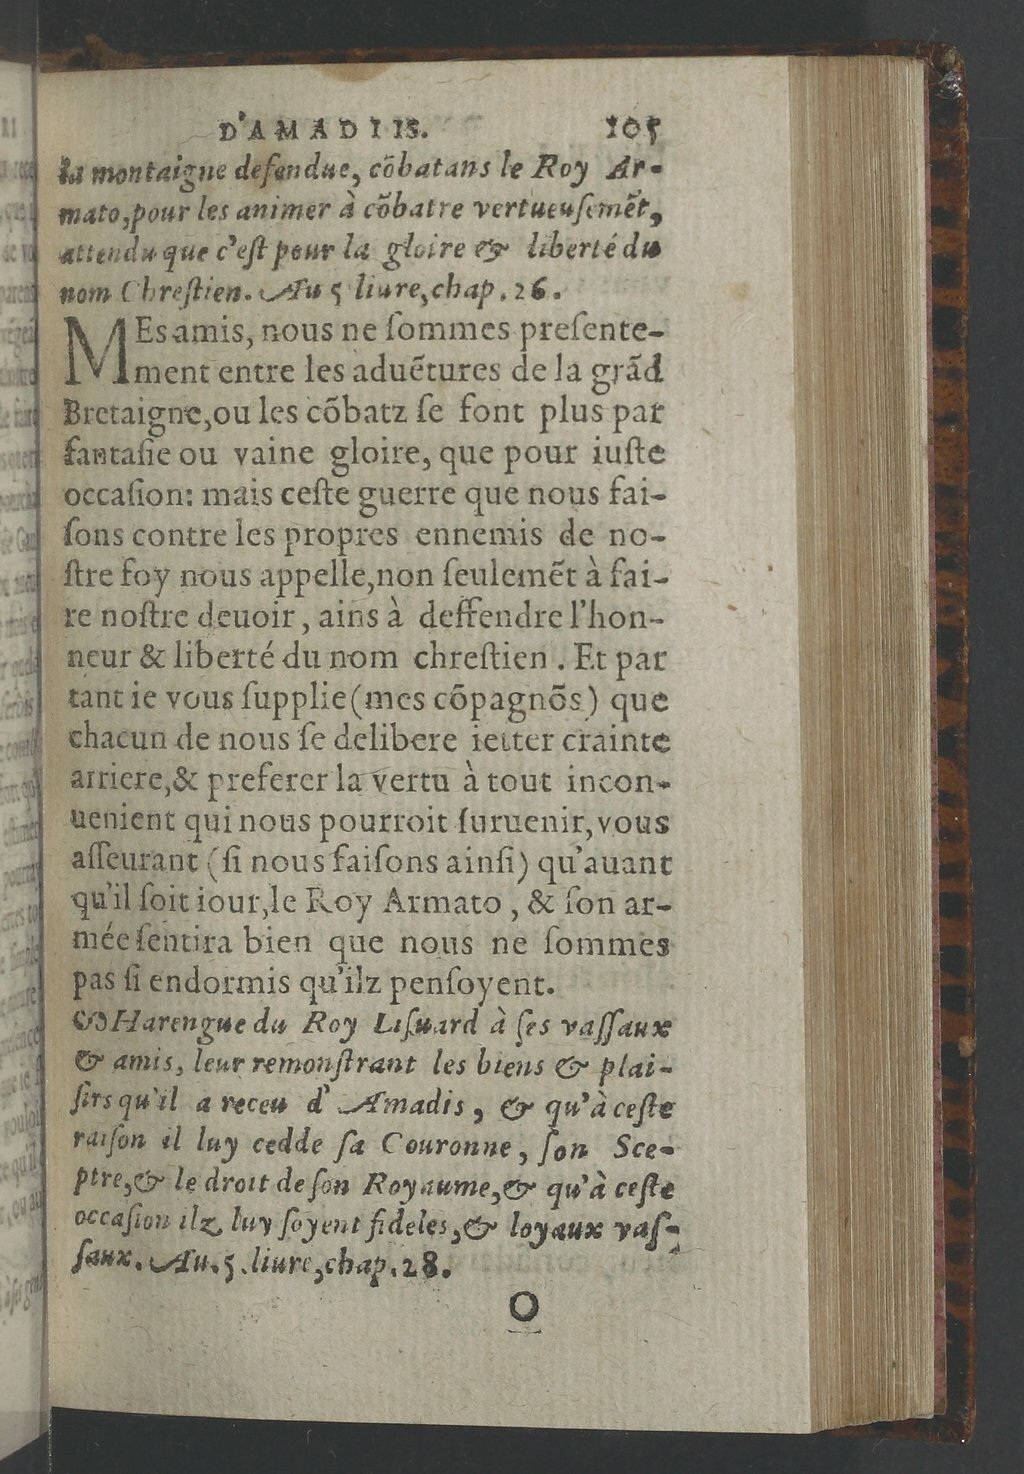 D'AMADIIS. 105
la montaigne defendue, cõbatans le Roy Ar-
mato, pour les animer à cõbatre vertueuſemẽt,
attendu que c'eſt pour la gloire & liberté du
nom Chreſtien. Au 5 liure, chap. 26.
MEs amis, nous ne ſommes preſente-
ment entre les aduẽtures de la grãd
Bretaigne, ou les cõbatz ſe font plus par
fantaſie ou vaine gloire, que pour iuſte
occaſion: mais ceſte guerre que nous fai-
ſons contre les propres ennemis de no-
ſtre foy nous appelle, non ſeulemẽt à fai-
re noſtre deuoir, ains à deffendre l'hon-
neur & liberté du nom chreſtien. Et par
tant ie vous ſupplie (mes cõpagnõs) que
chacun de nous ſe delibere ietter crainte
arriere, & preferer la vertu à tout incon-
uenient qui nous pourroit ſuruenir, vous
aſſeurant (ſi nous faiſons ainſi) qu'auant
qu'il ſoit iour, le Roy Armato, & ſon ar-
mée ſentira bien que nous ne ſommes
pas ſi endormis qu'ilz penſoyent.
Harengue du Roy Liſuard à ſes vaſſaux
& amis, leur remonſtrant les biens & plai-
ſirs qu'il a receu d'Amadis, & qu'à ceſte
raiſon il luy cedde ſa Couronne, ſon Sce-
ptre, & le droit de ſon Royaume, & qu'à ceſte
occaſion ilz luy ſoyent fideles, & loyaux vaſ-
ſaux. Au. 5. liure, chap. 28.
O